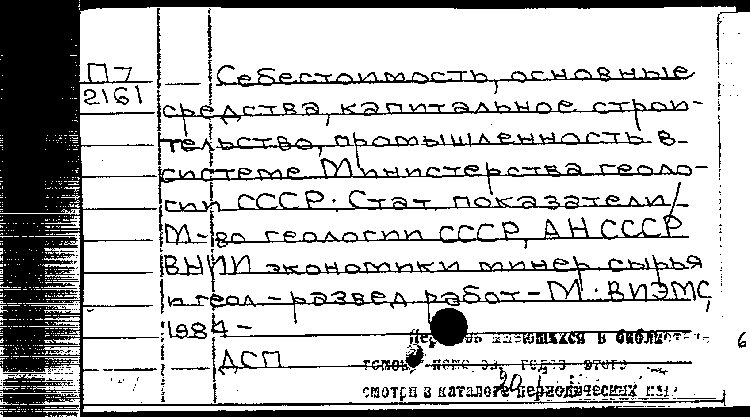 П7
2161
Себестоимость, основные
средства, капитальное строи-
тельство, промышленность в
системе Министерства геоло-
гии СССР: Стат. показатели /
М-во геологии СССР, АН СССР
ВНИИ экономики минер. сырья
и геол.-развед. работ - М.: ВИЭМС,
1984 -
ДСП
имеющихся в библиоте
томов, номеров, годов этого
смотри в каталоге периодических